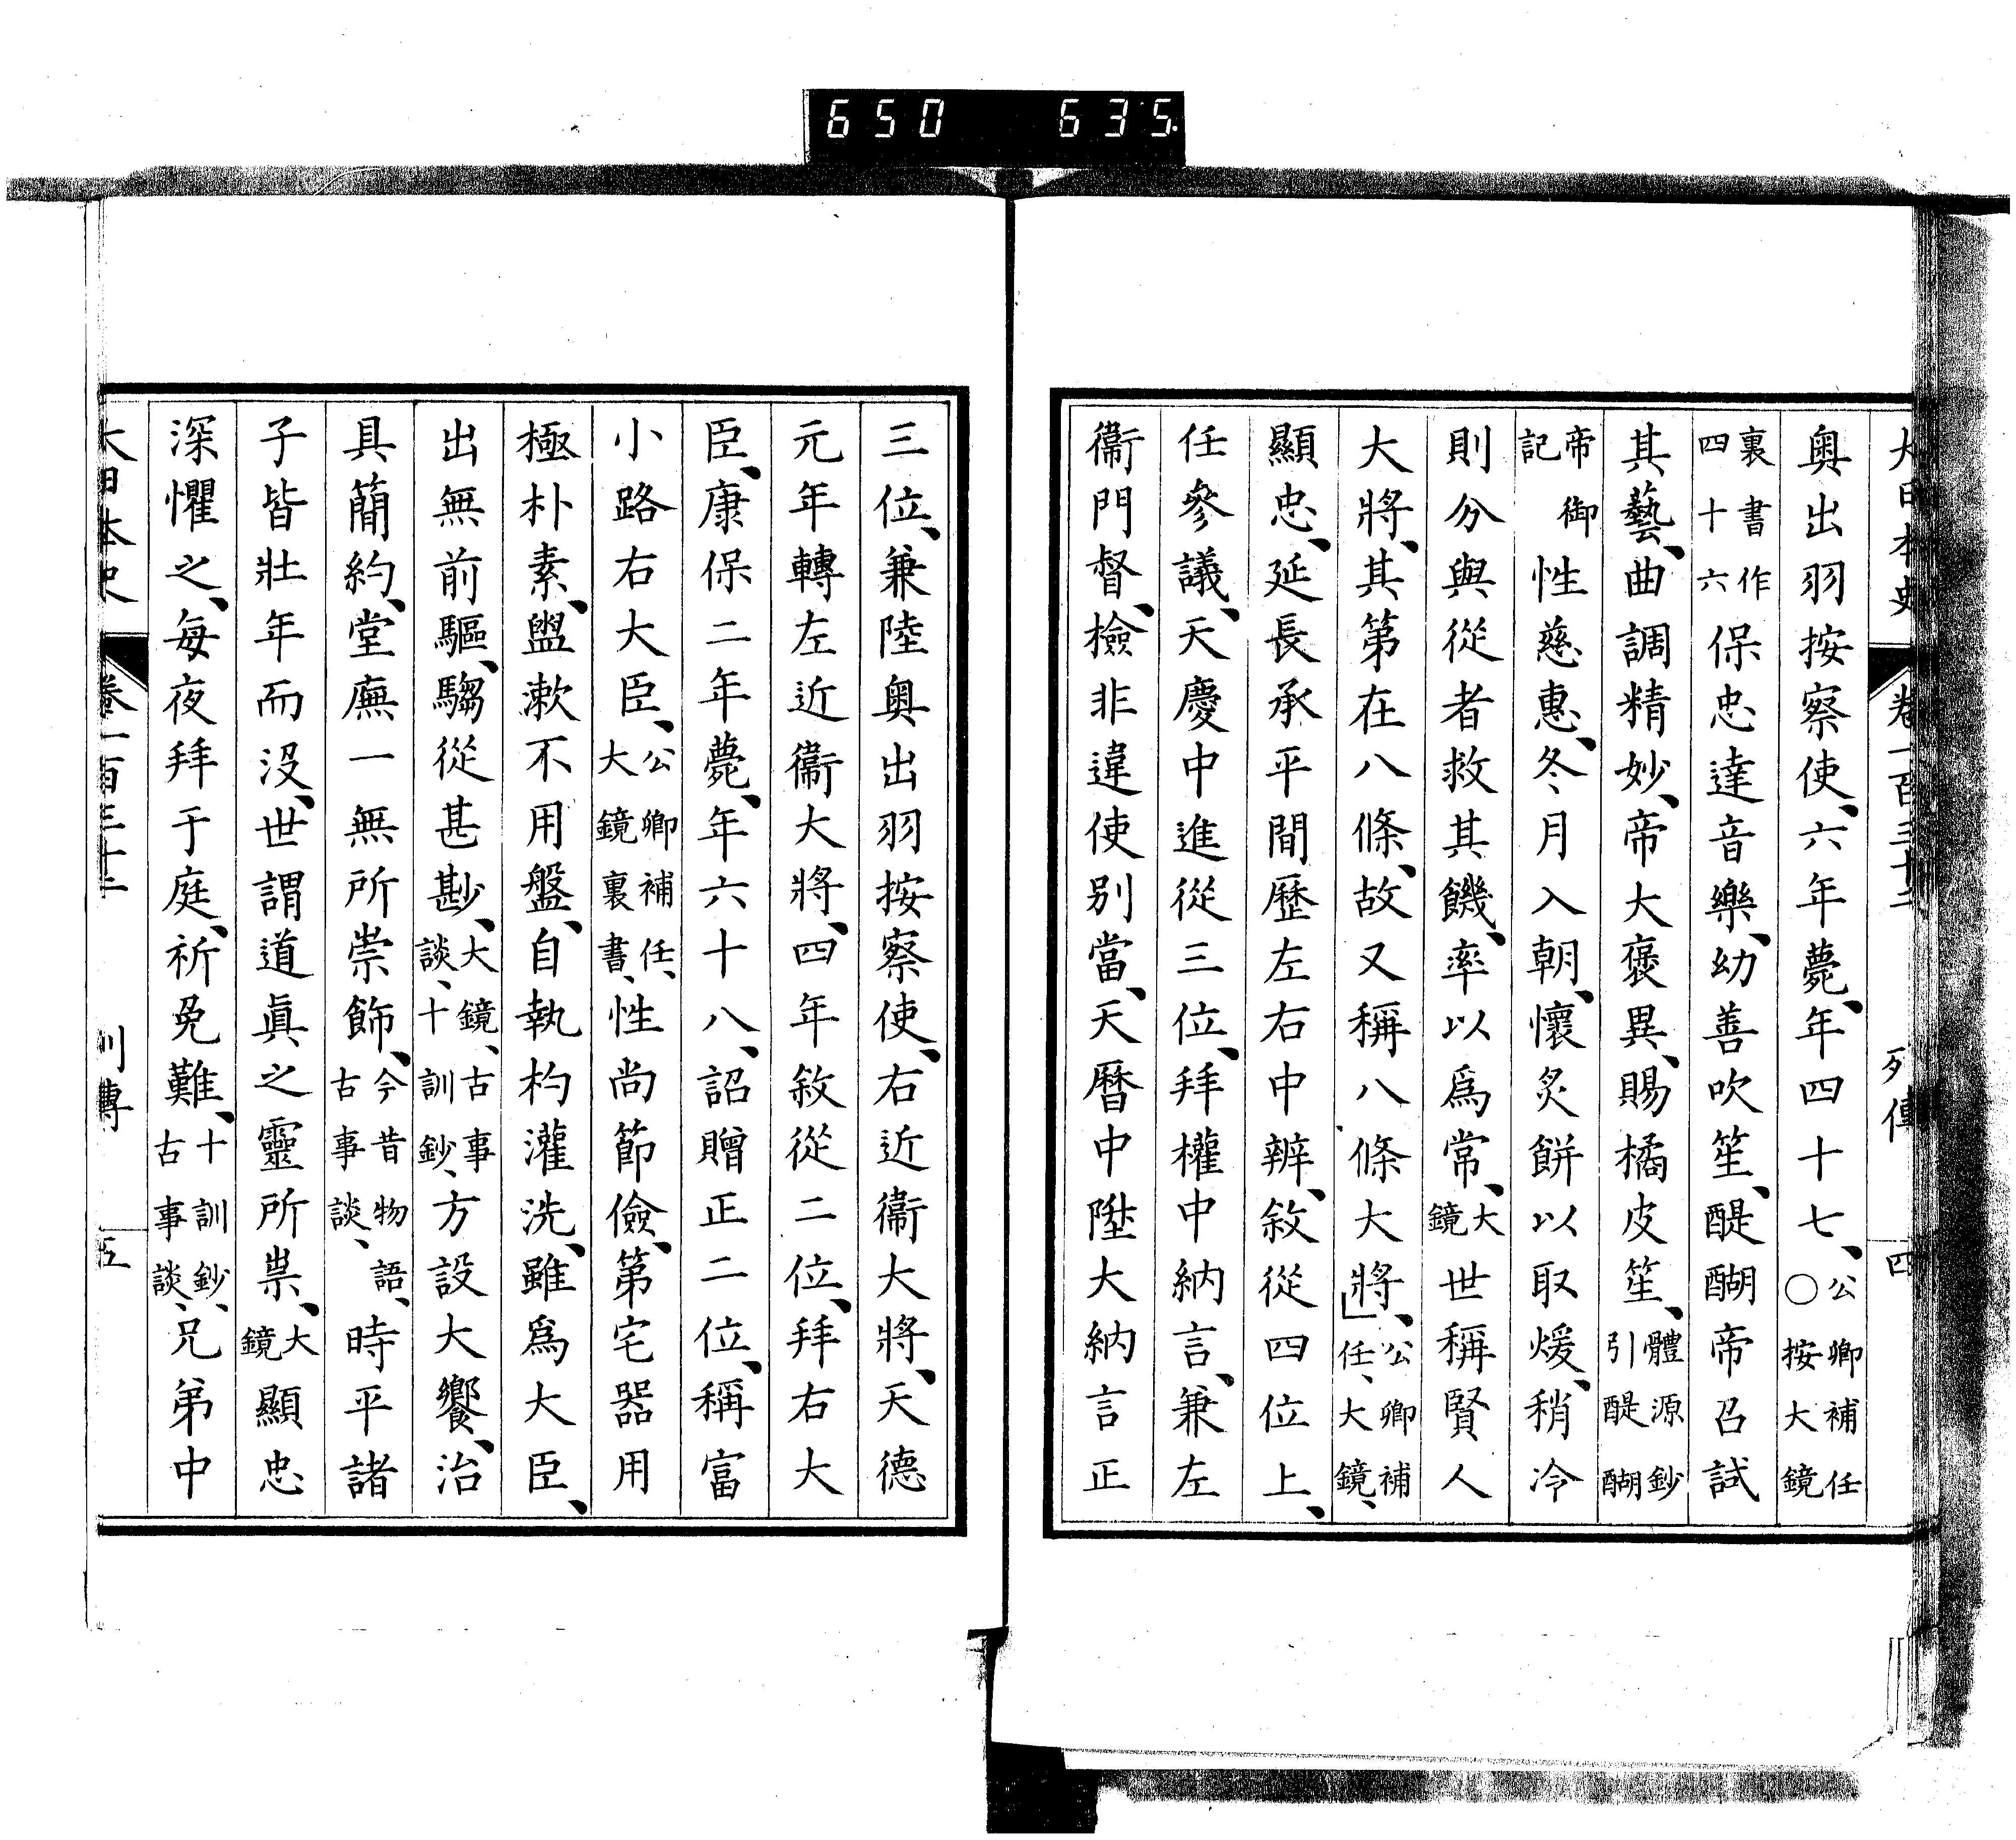 650 635
大日本史 卷一百三十二 列傳 四
奧出羽按察使、六年薨、年四十七、公卿補任○按大鏡
裏書作四十六保忠達音樂、幼善吹笙、醍醐帝召試
其藝、曲調精妙、帝大褒異、賜橘皮笙、體源鈔引醍醐
帝御記性慈惠、冬月入朝、懷炙餅以取煖、稍冷
則分與從者救其饑、率以爲常、大鏡世稱賢人
大將、其第在八條、故又稱八條大將、公卿補任、大鏡、
顯忠、延長承平間歷左右中辨、敘從四位上、
任參議、天慶中進從三位、拜權中納言、兼左
衞門督、檢非違使別當、天曆中陞大納言正
三位、兼陸奧出羽按察使、右近衞大將、天德
元年轉左近衞大將、四年敘從二位、拜右大
臣、康保二年薨、年六十八、詔贈正二位、稱富
小路右大臣、公卿補任、大鏡裏書、性尚節儉、第宅器用
極朴素、盥漱不用盤、自執杓灌洗、雖爲大臣、
出無前驅、騶從甚尠、大鏡、古事談、十訓鈔、方設大饗、治
具簡約、堂廡一無所崇飾、今昔物語、古事談、時平諸
子皆壯年而沒、世謂道眞之靈所祟、大鏡顯忠
深懼之、每夜拜于庭、祈免難、十訓鈔、古事談、兄弟中
大日本史 卷一百三十二 列傳 五